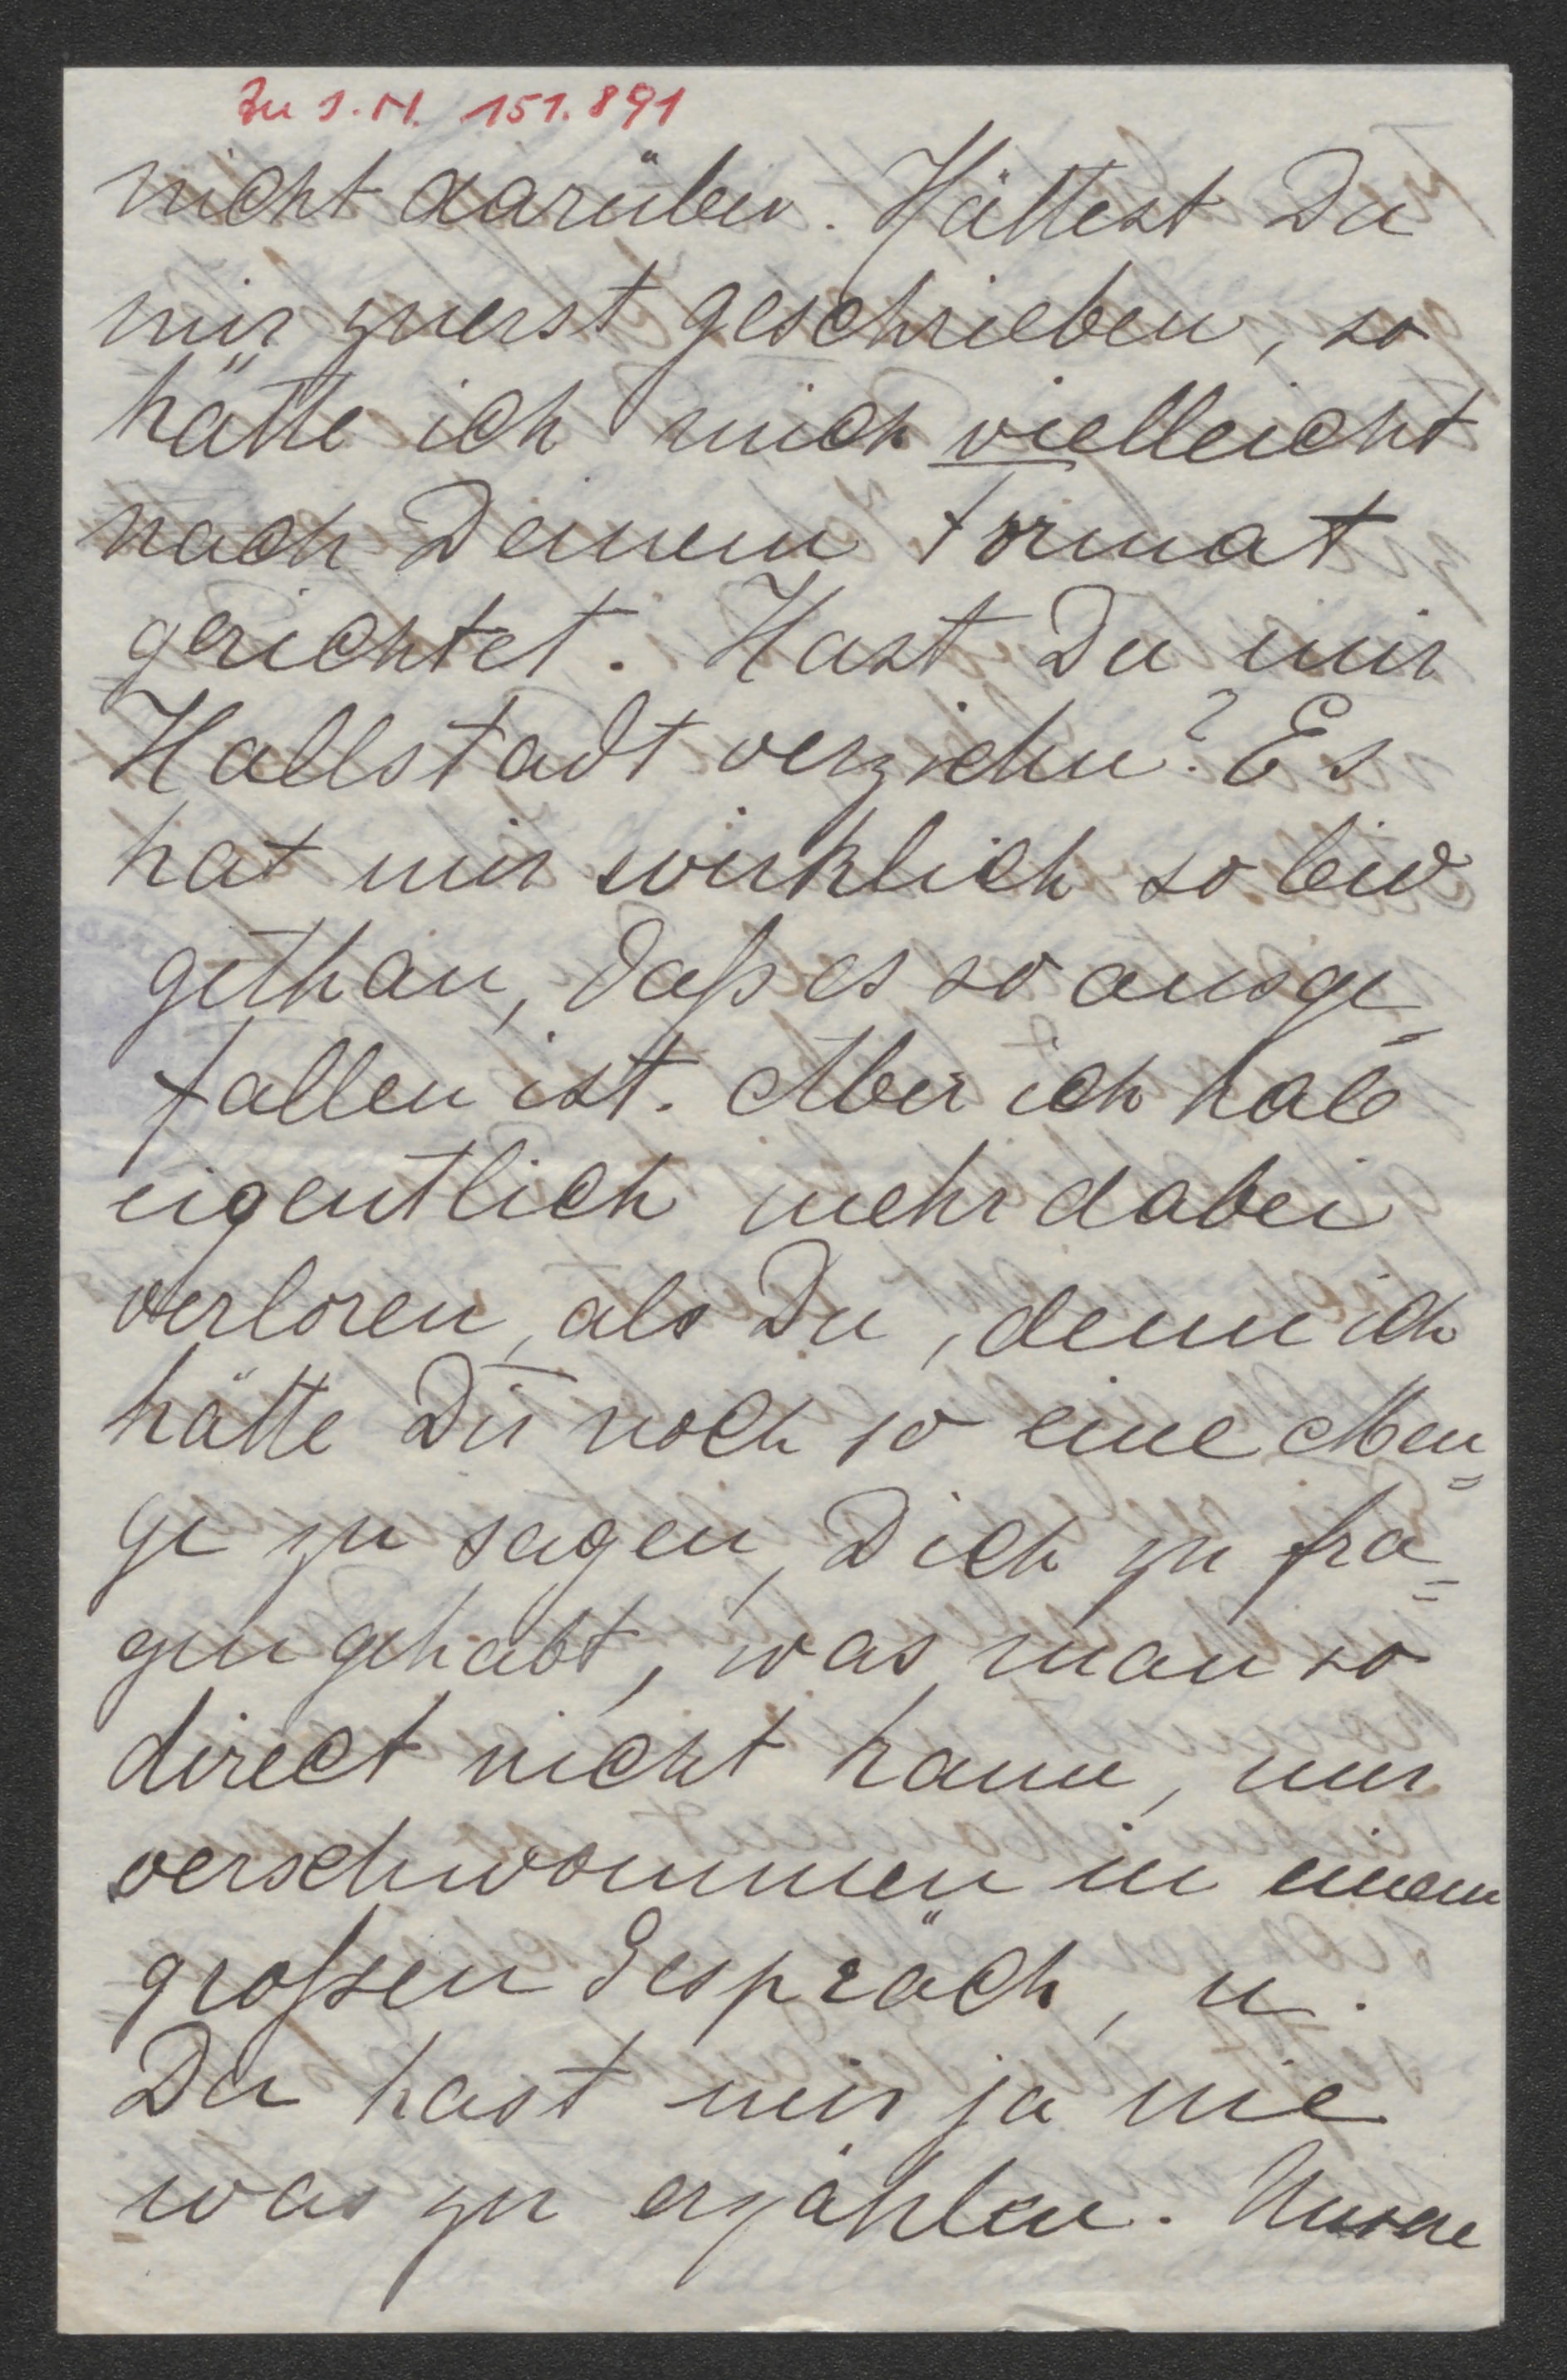 Zu I.N. 151.891
nicht darüber. Hättest Du
mir zuerst geschrieben, so
hätte ich mich vielleicht
nach Deinem Format
gerichtet. Hast Du mir
Hallstadt verziehn? Es
hat mir wirklich so leid
gethan, daß es so ausge=
fallen ist. Aber ich hab
eigentlich mehr dabei
verloren, als Du, denn ich
hätte Dir noch so eine Men=
ge zu sagen, Dich zu fra=
gen gehabt, was man so
direct nicht kann, nur
verschwommen in einem
großen Gespräch, u.
Du hast mir ja nie
was zu erzählen. Unsere